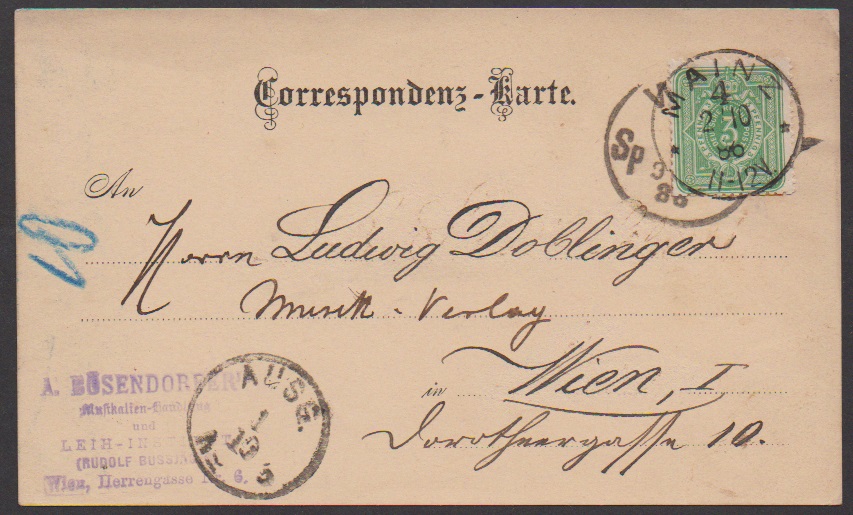 Correspondenz-Karte.
MAINZ
4
2 10
86
11-12V
Sp
86
An
Herrn Ludwig Doblinger
Musik-Verlag
in Wien, I
Dorotheergasse 10.
A. BÖSENDORFER
Musikalien-Handlung
und
LEIH-INS
(RUDOLF BUSSING
Wien, Herrengasse 6.
AUSG.